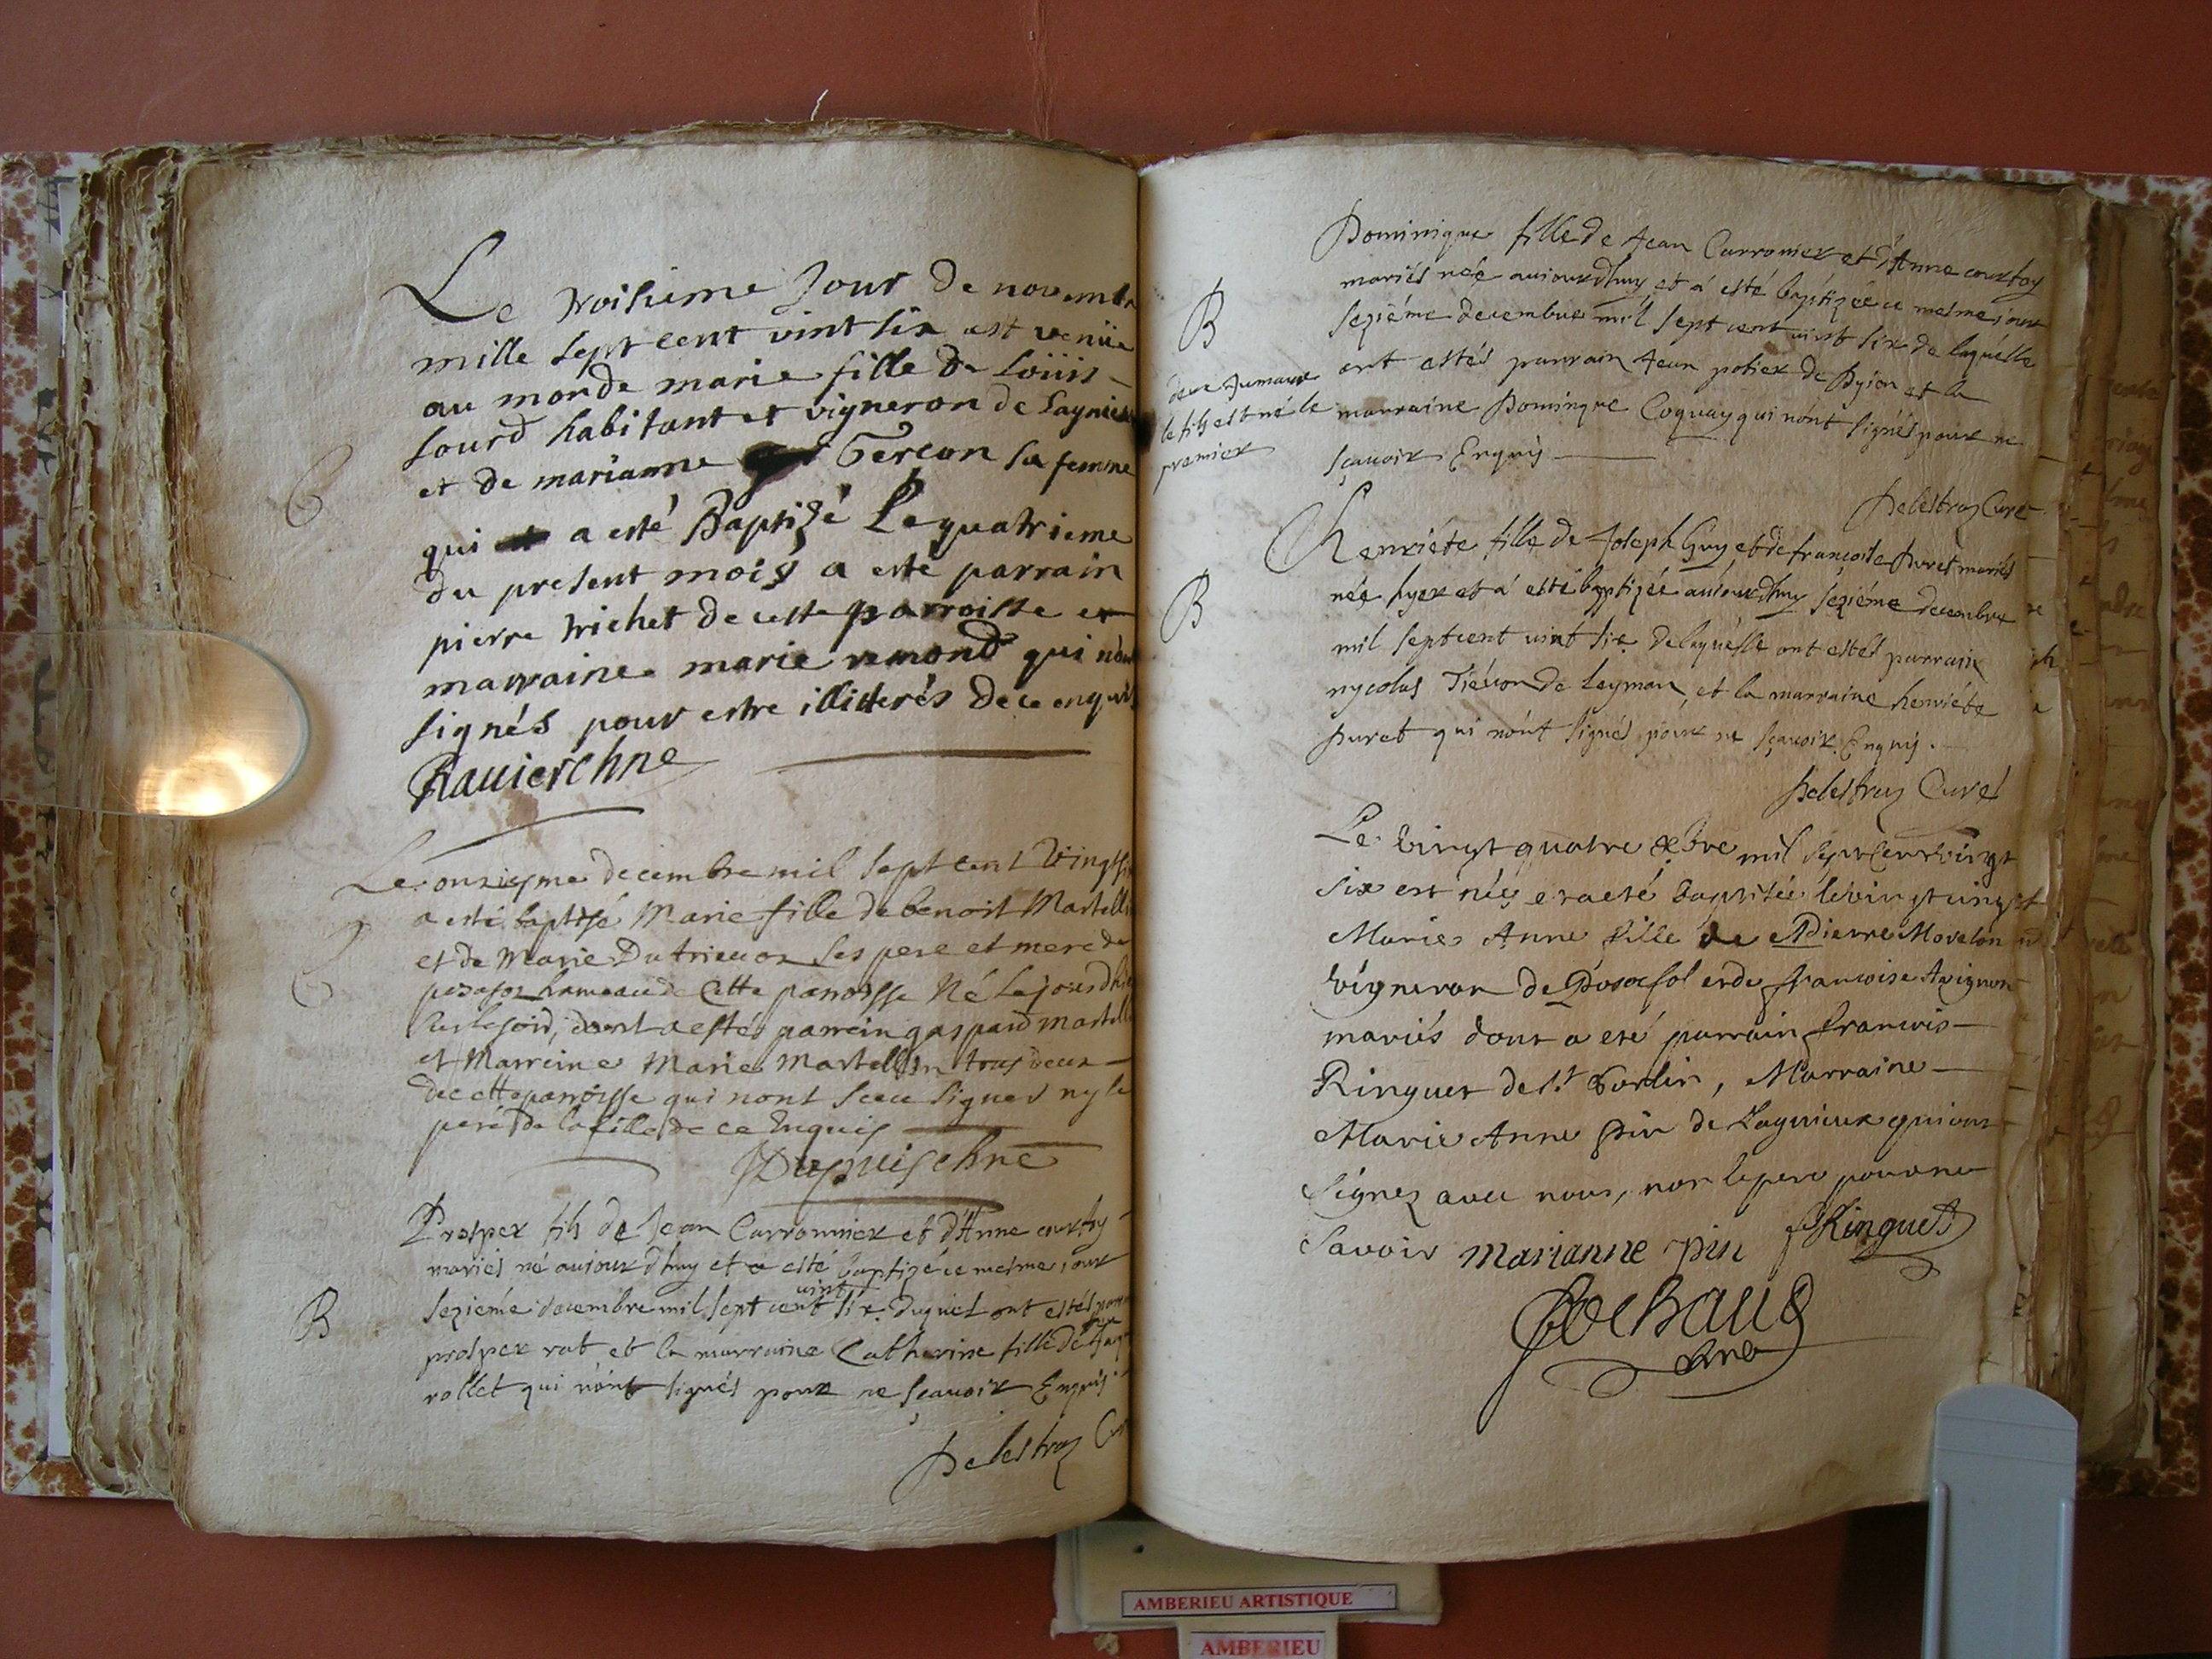 Le troisieme Jour de novemb
mille sept cent vint six est venüe
au monde marie fille de Loüis
Lourd habitant et vigneron de Lagnieu
et de marianne Gercon sa femme
qui a esté Baptizé Le quatrieme
du present mois a esté parrain
pierre trichet de cette parroisse et
marraine marie remond qui n'ont
signés pour estre illiterés de ce enquis
Rauier chne
Le onziesme decembre mil sept cent Vingt six
a esté baptisé Marie fille de benoit Martell
et de Marie Dutrieuoz ses pere et mere de
hameau de Cette parroisse Né Le jour d'hier
sur le soir, dont a estés parrein gaspard martell
et Marreine Marie Martellin tous deux
de cette parroisse qui n'ont sceu signer ny le
pere de la fille de ce Enquis
Dupuis chne
B
Prosper fils de Jean Carronnier et d'Anne courtoy
mariés né aujourdhuy et a esté baptizé ce mesme jour
sezieme decembre mil sept cent vint six. Duquel ont estés parr
prosper rat et la marraine Catherine fille de
rollet qui n'ont signés pour ne sçauoir Enquis.
Delestraz Cur
B
deux Jumaux
le fils est né le
premier
Dominique fille de Jean Carronier et d'Anne courtoy
mariés née aujourdhuy et a esté baptizée ce mesme jour
sezième decembre mil sept cent vint six de laquelle
ont estés parrain Jean potier de Dyion et la
marraine Dominque Coquay qui n'ont signés pour ne
sçauoir Enquis
Delestraz Curé
B
Henriéte fille de Joseph Guy et de françoise Puret mariés
née hyer et a esté baptizée aujourdhuy sezième decembre
mil sept cent vint six de laquelle ont estés parrain
nycolas Tiéuon de Leyman, et la marraine henriéte
puret qui n'ont signés pour ne sçauoir Enquis.
Delestraz Curé
Le vingt quatre xbre mil sept cent vingt
six est née et a eté baptisée le vingt cinq
Marie Anne fille de Pierre Morelon
vigneron de Posafol et de francoise Avignon
mariés dont a eté parrain francois
Ringuet de St Sorlin, Marraine
Marie Anne pin de Lagnieux qui ont
signez avec nous, non le pere pour ne
savoir Marianne pin f Ringuet
chne